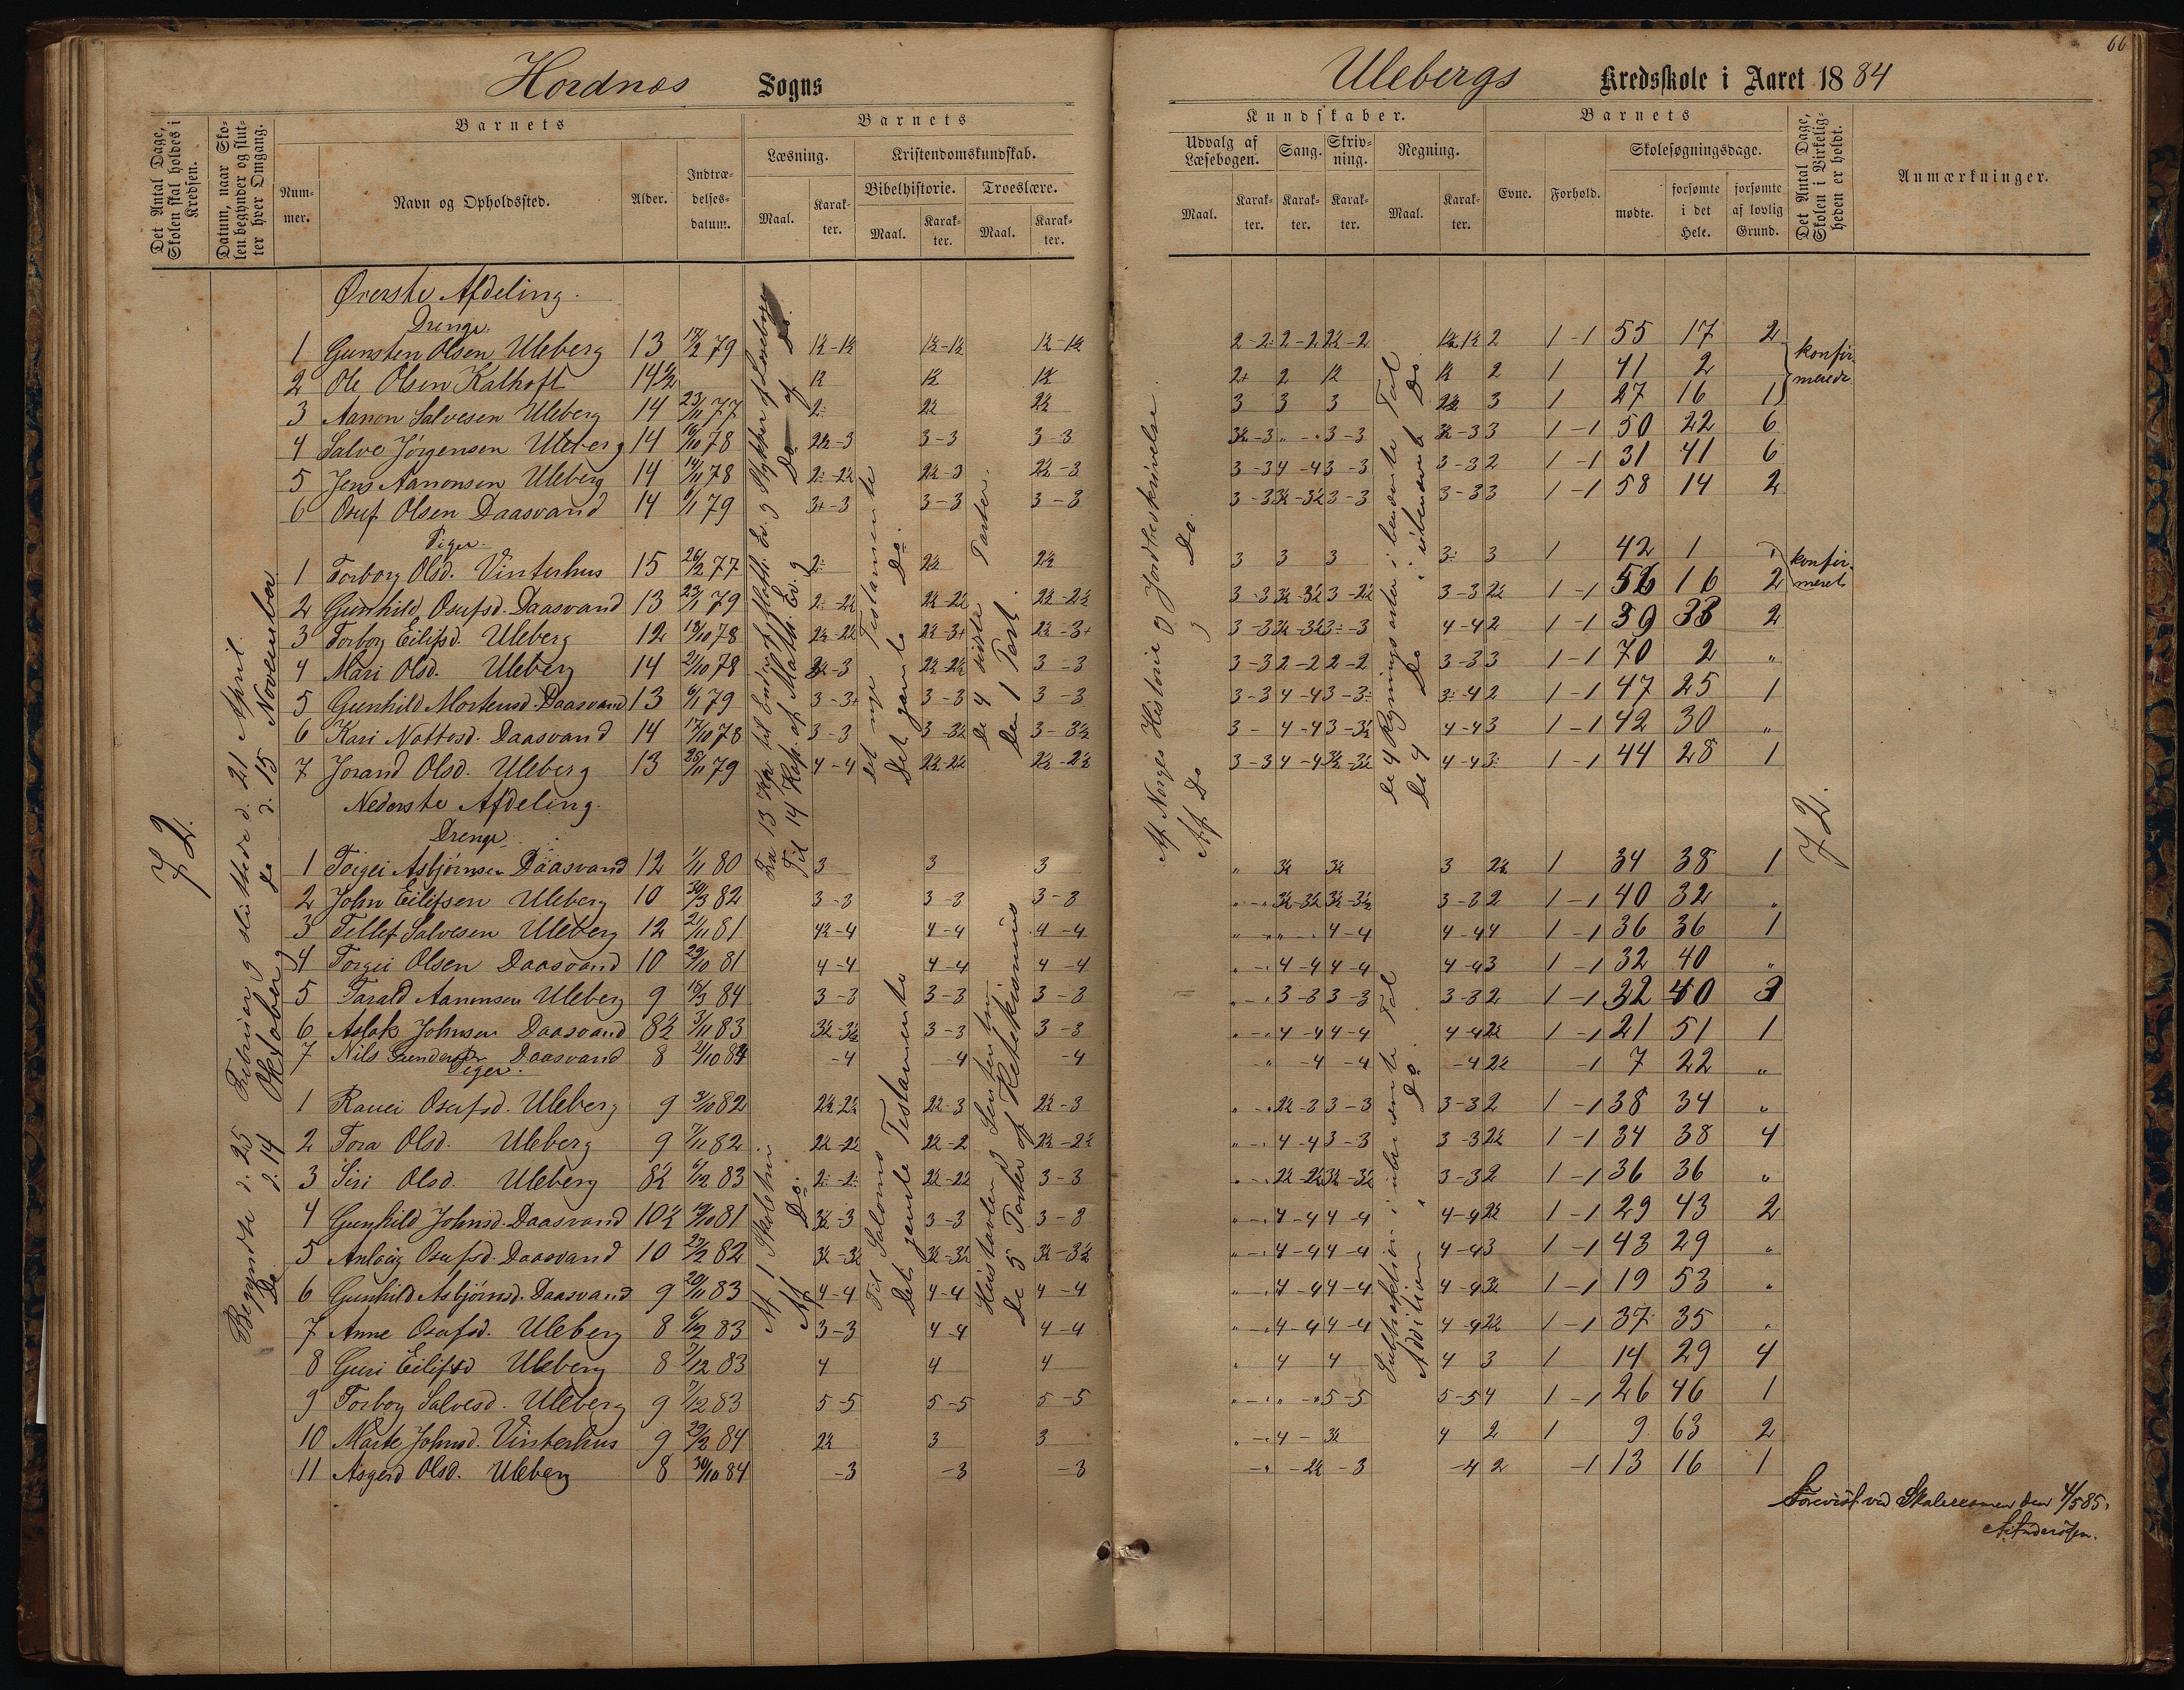 66
Hordnes Sogns
Ulebergs Kredsskole i Aaret 1884
Det Antal Dage, Skolen skal holdes i Kredsen.
Datum, naar Skolen begynder og slutter hver Omgang.
Barnets
Nummer.
Navn og Opholdssted.
Alder.
Indtrædelsesdatum.
Barnets
Læsning.
Maal.
Karakter.
Kristendomskundskab.
Bibelhistorie.
Maal.
Karakter.
Troeslære.
Maal.
Karakter.
Kundskaber.
Udvalg af Læsebogen.
Maal.
Karakter.
Sang.
Karakter.
Skrivning.
Karakter.
Regning.
Maal.
Karakter.
Barnets
Evne.
Forhold.
Skolesøgningsdage.
mødte.
forsømte i det Hele.
forsømte af lovlig Grund.
Det Antal Dage, Skolen i Virkeligheden er holdt.
Anmærkninger.
72.
Begyndte d. 25 Februar og sluttede d. 21 April.
Do d. 14 Oktober og do d. 15 November
Øverste Afdeling.
Drenge.
1 Gunsten Olsen Uleberg 13 17/2 79 1½-1½ 1½-1½ 1½-1½ 2-2÷ 2-2 2½-2 1½ 1½ 2 1-1 55 17 2
2 Ole Olsen Kalhoft 14½ 1½ 1½ 1½ 2+ 2 1½ 1½ 2 1 41 2
3 Aanon Salvesen Uleberg 14 23/11 77 2÷ 2½ 2½ 3 3 3 2½ 3 1 27 16 1
konfirmerede
4 Salve Jørgensen Uleberg 14 16/10 78 2½-3 3-3 3-3 3½-3 „-„ 3-3 3½-3 3 1-1 50 22 6
5 Jens Aanonsen Uleberg 14 14/11 78 2÷-2½ 2½-3 2½-3 3-3 4-4 3-3 3-3 2 1-1 31 41 6
6 Osuf Olsen Daasvand 14 6/1 79 3+-3 3-3 3-3 3-3 3½-3½ 3-3 3-3 3 1-1 58 14 2
Piger.
1 Torborg Olsd. Vinterhus 15 26/2 77 2÷ 2½ 2½ 3 3 3 3÷ 3 1 42 1 „
konfirmeret
2 Gunhild Osufsd. Daasvand 13 23/1 79 2÷-2½ 2½-2½ 2½-2½ 3-3 3½-3½ 3-2½ 3-3 2½ 1-1 56 16 2
3 Torborg Eilifsd. Uleberg 12 18/10 78 2½-2½ 2½-3+ 2½-3+ 3-3 3½-3½ 3÷-3 4-4 2 1-1 39 33 2
4 Mari Olsd. Uleberg 14 21/10 78 2½-3 2½-2½ 3-3 3-3 2-2 2-2 3-3 3 1-1 70 2 „
5 Gunhild Mortensd. Daasvand 13 6/1 79 3-3+ 3-3 3-3 3-3 4-4 3-3÷ 3÷-4 2 1-1 47 25 1
6 Kari Nottosd. Daasvand 14 17/10 78 3-3 3-3½ 3-3½ 3- 4-4 3-3½ 4-4 3 1-1 42 30 „
7 Jorand Olsd. Uleberg 13 25/11 79 4-4 2½-2½ 2½-2½ 3-3 4-4 3½-3½ 4-4 3÷ 1-1 44 28 1
det nye Testamente
Det gamle Do.
De 4 sidste Parter.
Den 1 Part.
Af Norges Historie og Jordbeskrivelse.
Af Do og Do.
De 4 Regningsarter i benævnte Tal
De 4 Do i ubenævnt Do.
Nederste Afdeling.
Drenge.
1 Torgei Asbjørnsen Daasvand 12 1/11 80 3 3 3 „ 3½ 3½ 3 2½ 1 34 38 1
2 John Eilifsen Uleberg 10 30/3 82 3-3 3-3 3-3 „-„ 3½-3½ 3½-3½ 3-3 2 1-1 40 32 „
3 Tellef Salvesen Uleberg 12 21/11 81 4½-4 4-4 4-4 „-„ „-„ 4-4 4-4 4 1-1 36 36 1
4 Torgei Olsen Daasvand 10 29/10 81 4-4 4-4 4-4 „-„ 4-4 4-4 4-4 3 1-1 32 40 „
5 Tarald Aanonsen Uleberg 9 18/3 84 3-3 3-3 3-3 „-„ 3-3 3-3 3-3 2 1-1 32 40 3
6 Aslak Johnsen Daasvand 8½ 3/11 83 3½-3½ 3-3 3-3 „-„ 4-4 4-4 4-4 2½ 1-1 21 51 1
7 Nils Gundersen Daasvand 8 21/10 84 -4 -4 -4 „ -4 -4 -4 2½ -1 7 22 „
Piger.
1 Ranei Osufsd. Uleberg 9 3/10 82 2½-2½ 2½-3 2½-3 „-„ 2½-3 3-3 3-3 2 1-1 38 34 „
2 Tora Olsd. Uleberg 9 7/11 82 2½-2½ 2½-2 2½-2½ „-„ 4-4 3-3 3-3 2½ 1-1 34 38 4
3 Siri Olsd. Uleberg 8½ 6/12 83 2÷-2÷ 2½-2½ 3-3 „-„ 2½-2½ 3½-3½ 3-3 2 1-1 36 36 „
4 Gunhild Johnsd. Daasvand 10½ 19/10 81 3½-3 3-3 3-3 „-„ 4-4 4-4 4-4 2½ 1-1 29 43 2
5 Anlaug Osufsd. Daasvand 10 23/2 82 3½-3½ 3½-3½ 3½-3½ „-„ 4-4 4-4 4-4 3 1-1 43 29 „
6 Gunhild Asbjørnsd. Daasvand 9 20/11 83 4-4 4-4 4-4 „-„ 4-4 4-4 4-4 3½ 1-1 19 53 „
7 Anne Osufsd. Uleberg 8 6/12 83 3-3 4-4 4-4 „-„ 4-4 4-4 4-4 2½ 1-1 37 35 „
8 Guri Eilifsd Uleberg 8 7/12 83 4 4 4 „ 4 4 4 3 1 14 29 4
9 Torborg Salvesd. Uleberg 9 7/12 83 5-5 5-5 5-5 „-„ „-„ 5-5 5-5 4 1-1 26 46 1
10 Marte Johnsd. Vinterhus 9 29/2 84 2½ 3 3 „-„ 4- 3½ 4 2 1 9 63 2
11 Asgerd Olsd. Uleberg 8 30/10 84 -3 -3 -3 -„ -2½ -3 -4 2 -1 13 16 1
Af 1 Skoletrin
Af Do.
Til Salomo Testamente
Det gamle
Hustavlen og
De 5 Parter af Katekismus
Subtraktion i ubenævnte Tal
Addition „ Do.
72.
Forevist ved Skoleexamen den 4/5 85.